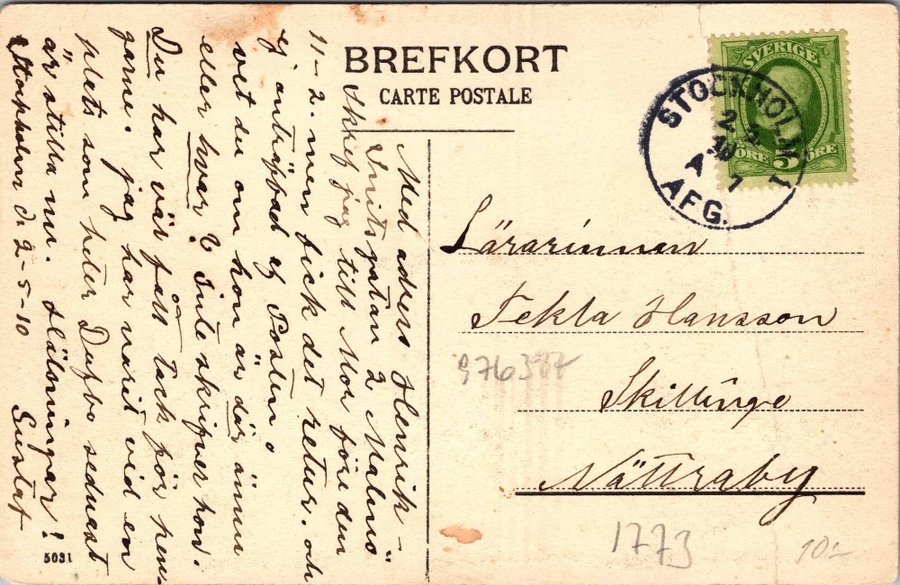 BREFKORT
CARTE POSTALE
SVERIGE
5 ÖRE
STOCKHOLM 1
2 5
10
A 7
AFG.
Lärarinnan
Tekla Hansson
Skillinge
Nättraby
976
1773
10:-
Med adress Henrik-
gatan 2 Malmö
skref jag till Moa före den
11-2. men fick det retur. och
ej anträffad af Posten.
vet du om hon är där ännu
eller hvar? Inte skrifver hon.
Du har väl fått och tack för pen-
garne. jag har varit vid en
plats som heter Dufbo sednast
är stilla nu. Hälsningar!
Stockholm d. 2-5-10 Gustaf
5031